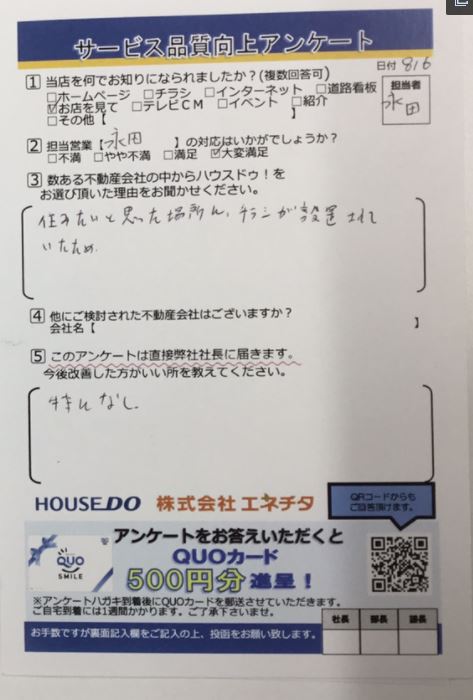 サービス品質向上アンケート
日付 8/6
1 当店を何でお知りになられましたか?(複数回答可)
□ホームページ □チラシ □インターネット □道路看板
☑お店を見て □テレビCM □イベント □紹介
□その他【 】
担当者
永田
2 担当営業【永田 】の対応はいかがでしょうか?
□不満 □やや不満 □満足 ☑大変満足
3 数ある不動産会社の中からハウスドゥ!を
お選び頂いた理由をお聞かせください。
住みたいと思った場所に、チラシが設置されて
いたため.
4 他にご検討された不動産会社はございますか?
会社名【 】
5 このアンケートは直接弊社社長に届きます。
今後改善した方がいい所を教えてください。
特になし.
HOUSE DO 株式会社 エネチタ
QRコードからも
ご回答頂けます。
アンケートをお答えいただくと
QUOカード
500円分 進呈!
QUO
SMILE
※アンケートハガキ到着後にQUOカードを郵送させていただきます。
ご自宅到着には1週間かかります。ご了承下さいませ。
お手数ですが裏面記入欄をご記入の上、投函をお願い致します。
社長 部長 課長